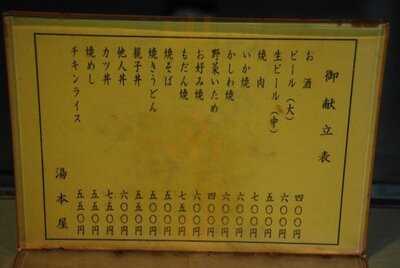 御献立表
お酒 四〇〇円
ビール(大) 六〇〇円
生ビール(中) 五〇〇円
焼肉 七〇〇円
いか焼 六〇〇円
かしわ焼 六〇〇円
野菜いため 四〇〇円
お好み焼 六〇〇円
もだん焼 七五〇円
焼そば 五五〇円
焼きうどん 五五〇円
親子丼 五五〇円
他人丼 六〇〇円
カツ丼 七五〇円
焼めし 五五〇円
チキンライス 五五〇円
湯本屋